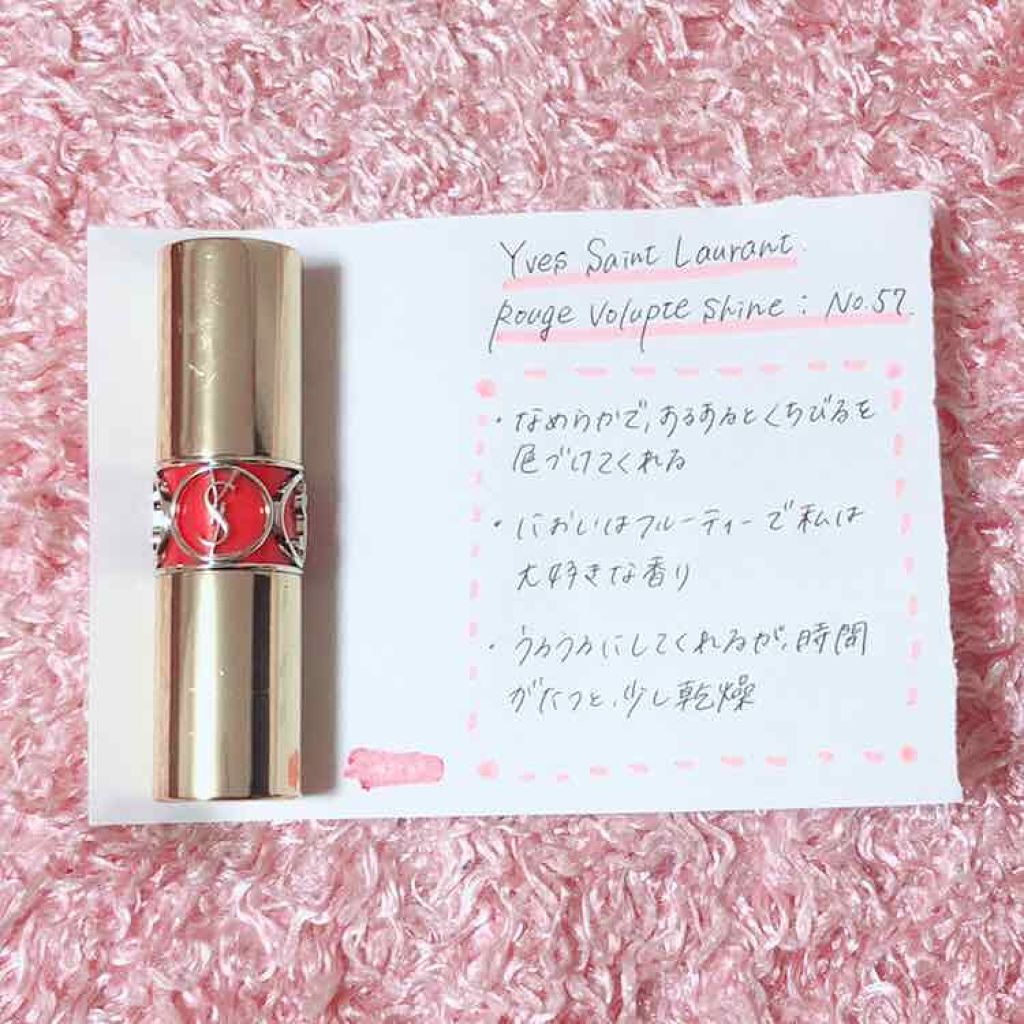 Yves Saint Laurant.
Rouge Volupte Shine : No.57.
・なめらかで、あるあるとくちびるを
色づけてくれる
・においはフルーティーで私は
大好きな香り
・うるうるにしてくれるが、時間
がたつと、少し乾燥